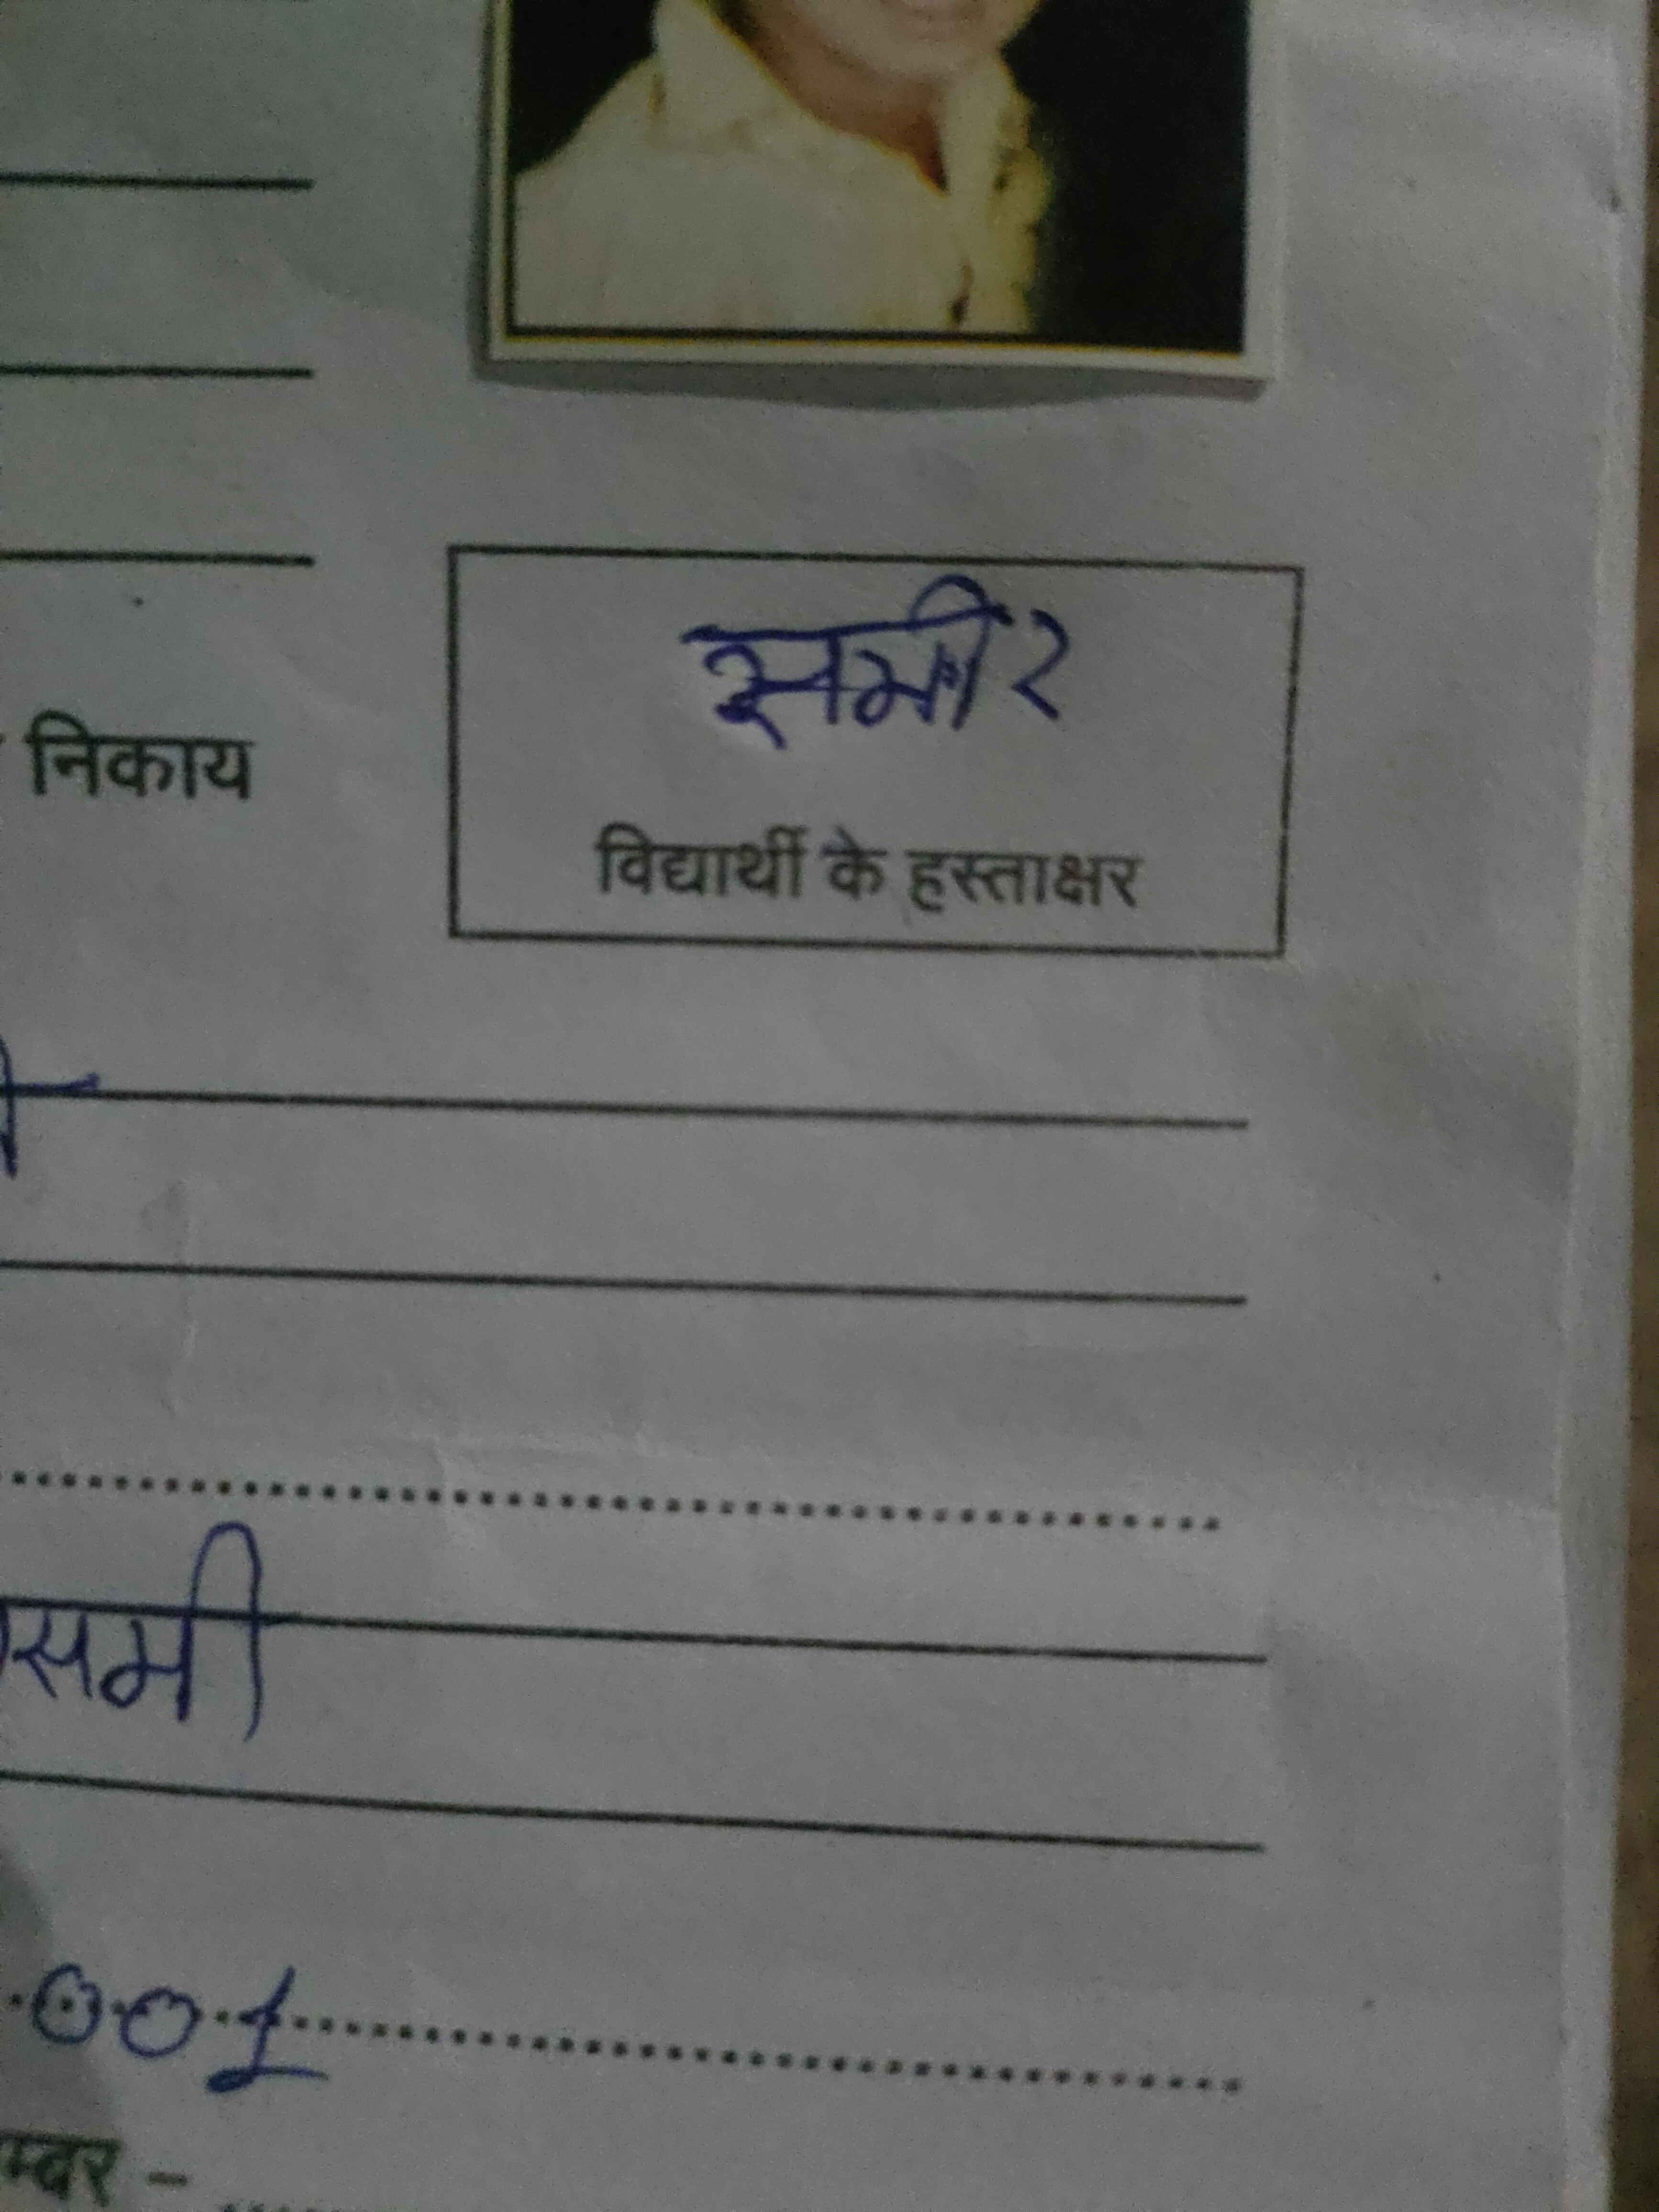 समीर
निकाय
विद्यार्थी के हस्ताक्षर
समी
001
म्बर -